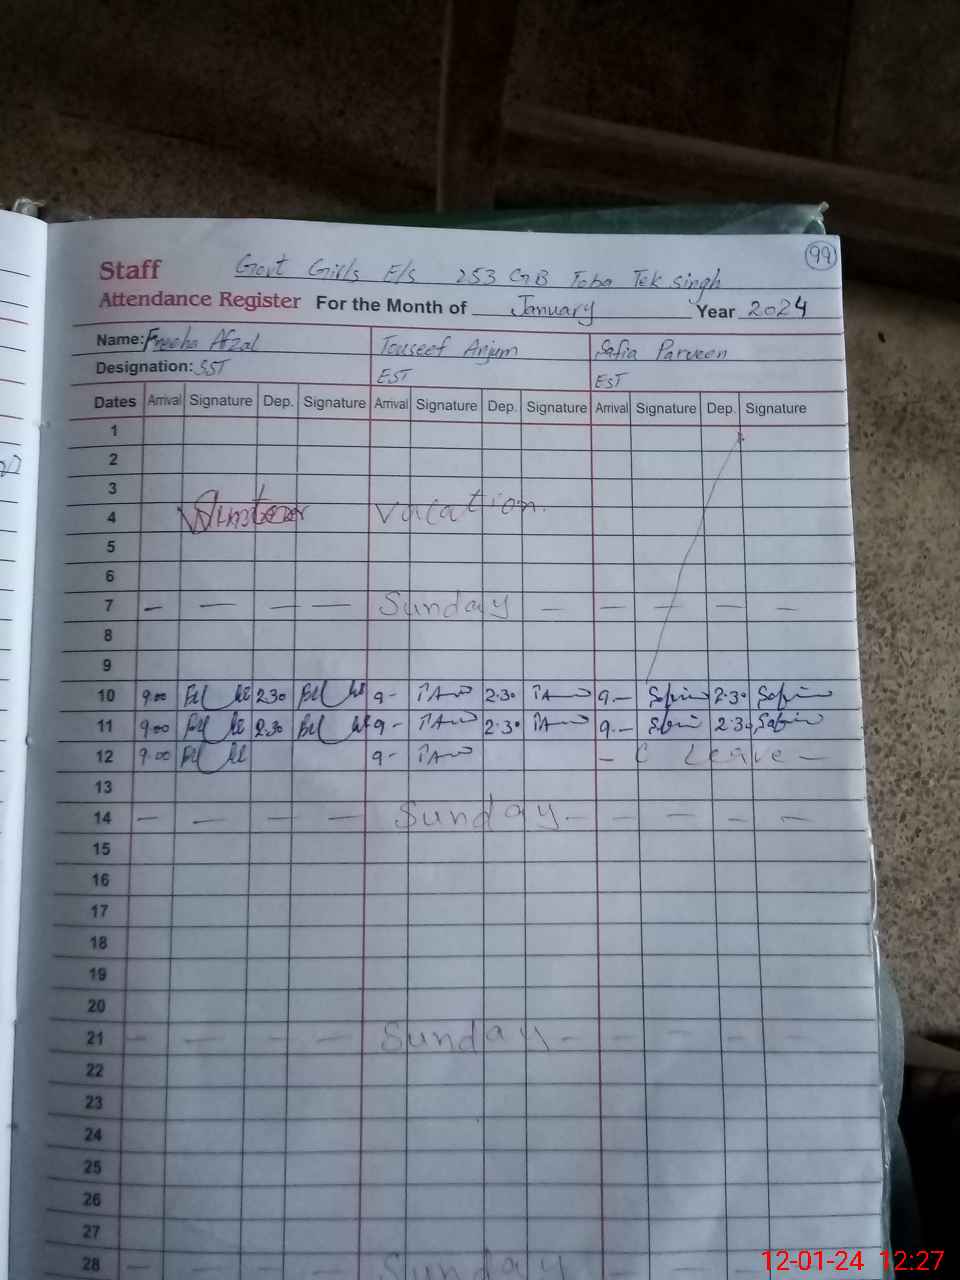 99
Staff Govt Girls E/s 253 GB Toba Tek singh
Attendance Register For the Month of January Year 2024
Name: Freeha Afzal Touseef Anjum Safia Parveen
Designation: SST EST EST
Dates Arrival Signature Dep. Signature Arrival Signature Dep. Signature Arrival Signature Dep. Signature
1
2
3
4 Winter Vacation.
5
6
7 — — — — Sunday — — — — —
8
9
10 9.00 2.30 9- 2.30 9.— Safia 2.30 Safia
11 9.00 2.30 9- 2.30 9.— Safia 2.30 Safia
12 9.00 9- - C Leave —
13
14 — — — — Sunday — — — — —
15
16
17
18
19
20
21 — — — — Sunday — — — — —
22
23
24
25
26
27
28 Sunday
12-01-24 12:27